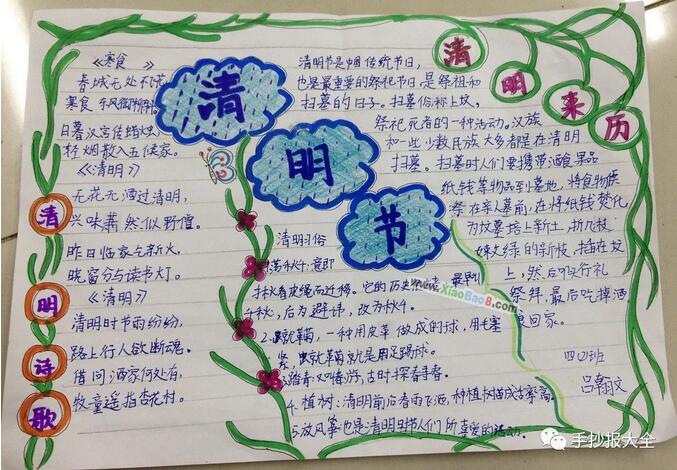 《寒食》
春城无处不飞
寒食
日暮汉宫传蜡烛
轻烟散入五侯家。
《清明》
无花无酒过清明,
兴味萧然似野僧。
昨日临家乞新火,
晓窗分与读书灯。
《清明》
清明时节雨纷纷,
路上行人欲断魂。
借问酒家何处有,
牧童遥指杏花村。
清明诗歌
清
明
节
清明来历
清明节是 传统节日,
也是最重要的祭祀节日 是祭祖和
扫墓的日子。扫墓俗称上坟,
祭祀死者的一种活动。汉族
和一些少数民族大多都是在清明
扫墓。扫墓时人们要携带酒食果品
纸钱等物品到墓地,将食物供
祭在亲人墓前,在将纸钱焚化
为坟墓培上新土,折几枝
嫩绿的新枝,插在坟
上,然后叩头行礼
祭拜,最后吃掉酒
回家。
清明习俗
荡秋千:意即
揪着皮绳而迁移。它的历史 最
千秋,后为避讳,改为秋千
2. 蹴鞠,一种用皮革做成的球,用毛塞
紧,蹴鞠就是用足踢球。
踏青:又叫春游,古时 探春
4. 植树:清明前后春雨飞洒,种植树苗成 率高
5. 放风筝也是清明时节人们所喜爱的活动。
四 班
吕 文
www.XiaoBao8.com
手抄报大全